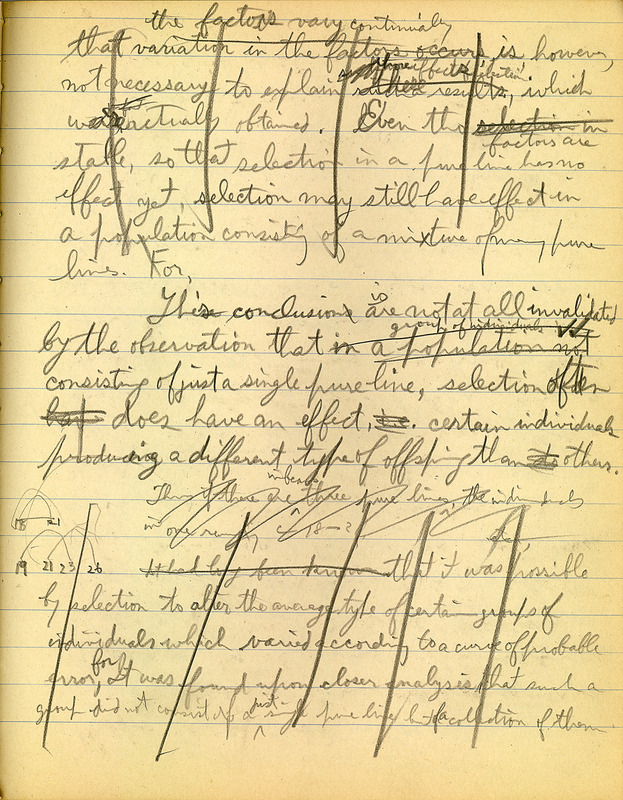 the factors vary continually
that variation in the factors occurs is however
not necessary to explain these results, which
were actually obtained. Even tho selection in
factors are
stable, so that selection in a pure line has no
effect yet, selection may still have effect in
a population consistig of a mixture of many pure
lines. For,
This conclusion is are not at all invalidated
group of individuals
by the observation that in a population not
consisting of just a single pure line, selection often
but does have an effect, certain individuals
producing a different type of offsping than others.
in beans
Thus if there are three pure lines, the individuals
in one 18
18 21
19 21 23 26
It had long been known that it was possible
by selection to alter the average type of certain groups of
individuals which varied according to a curve of probable
for
error, It was found upon closer analysis that such a
just
group did not consist of a single pure line but of a collection of them